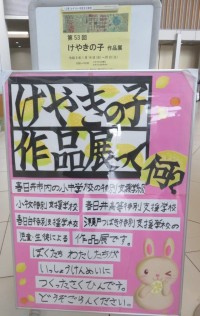 第53回
けやきの子 作品展
けやきの子
作品展って何?
春日井市内の小中学校の特別支援学級
小牧特別支援学校
春日井高等特別支援学校
春日台特別支援学校
瀬戸つばき特別支援学校の
児童・生徒による 作品展です。
ぼくたち わたしたちが
いっしょうけんめいに
つくったさくひんです。
どうぞごらんください。